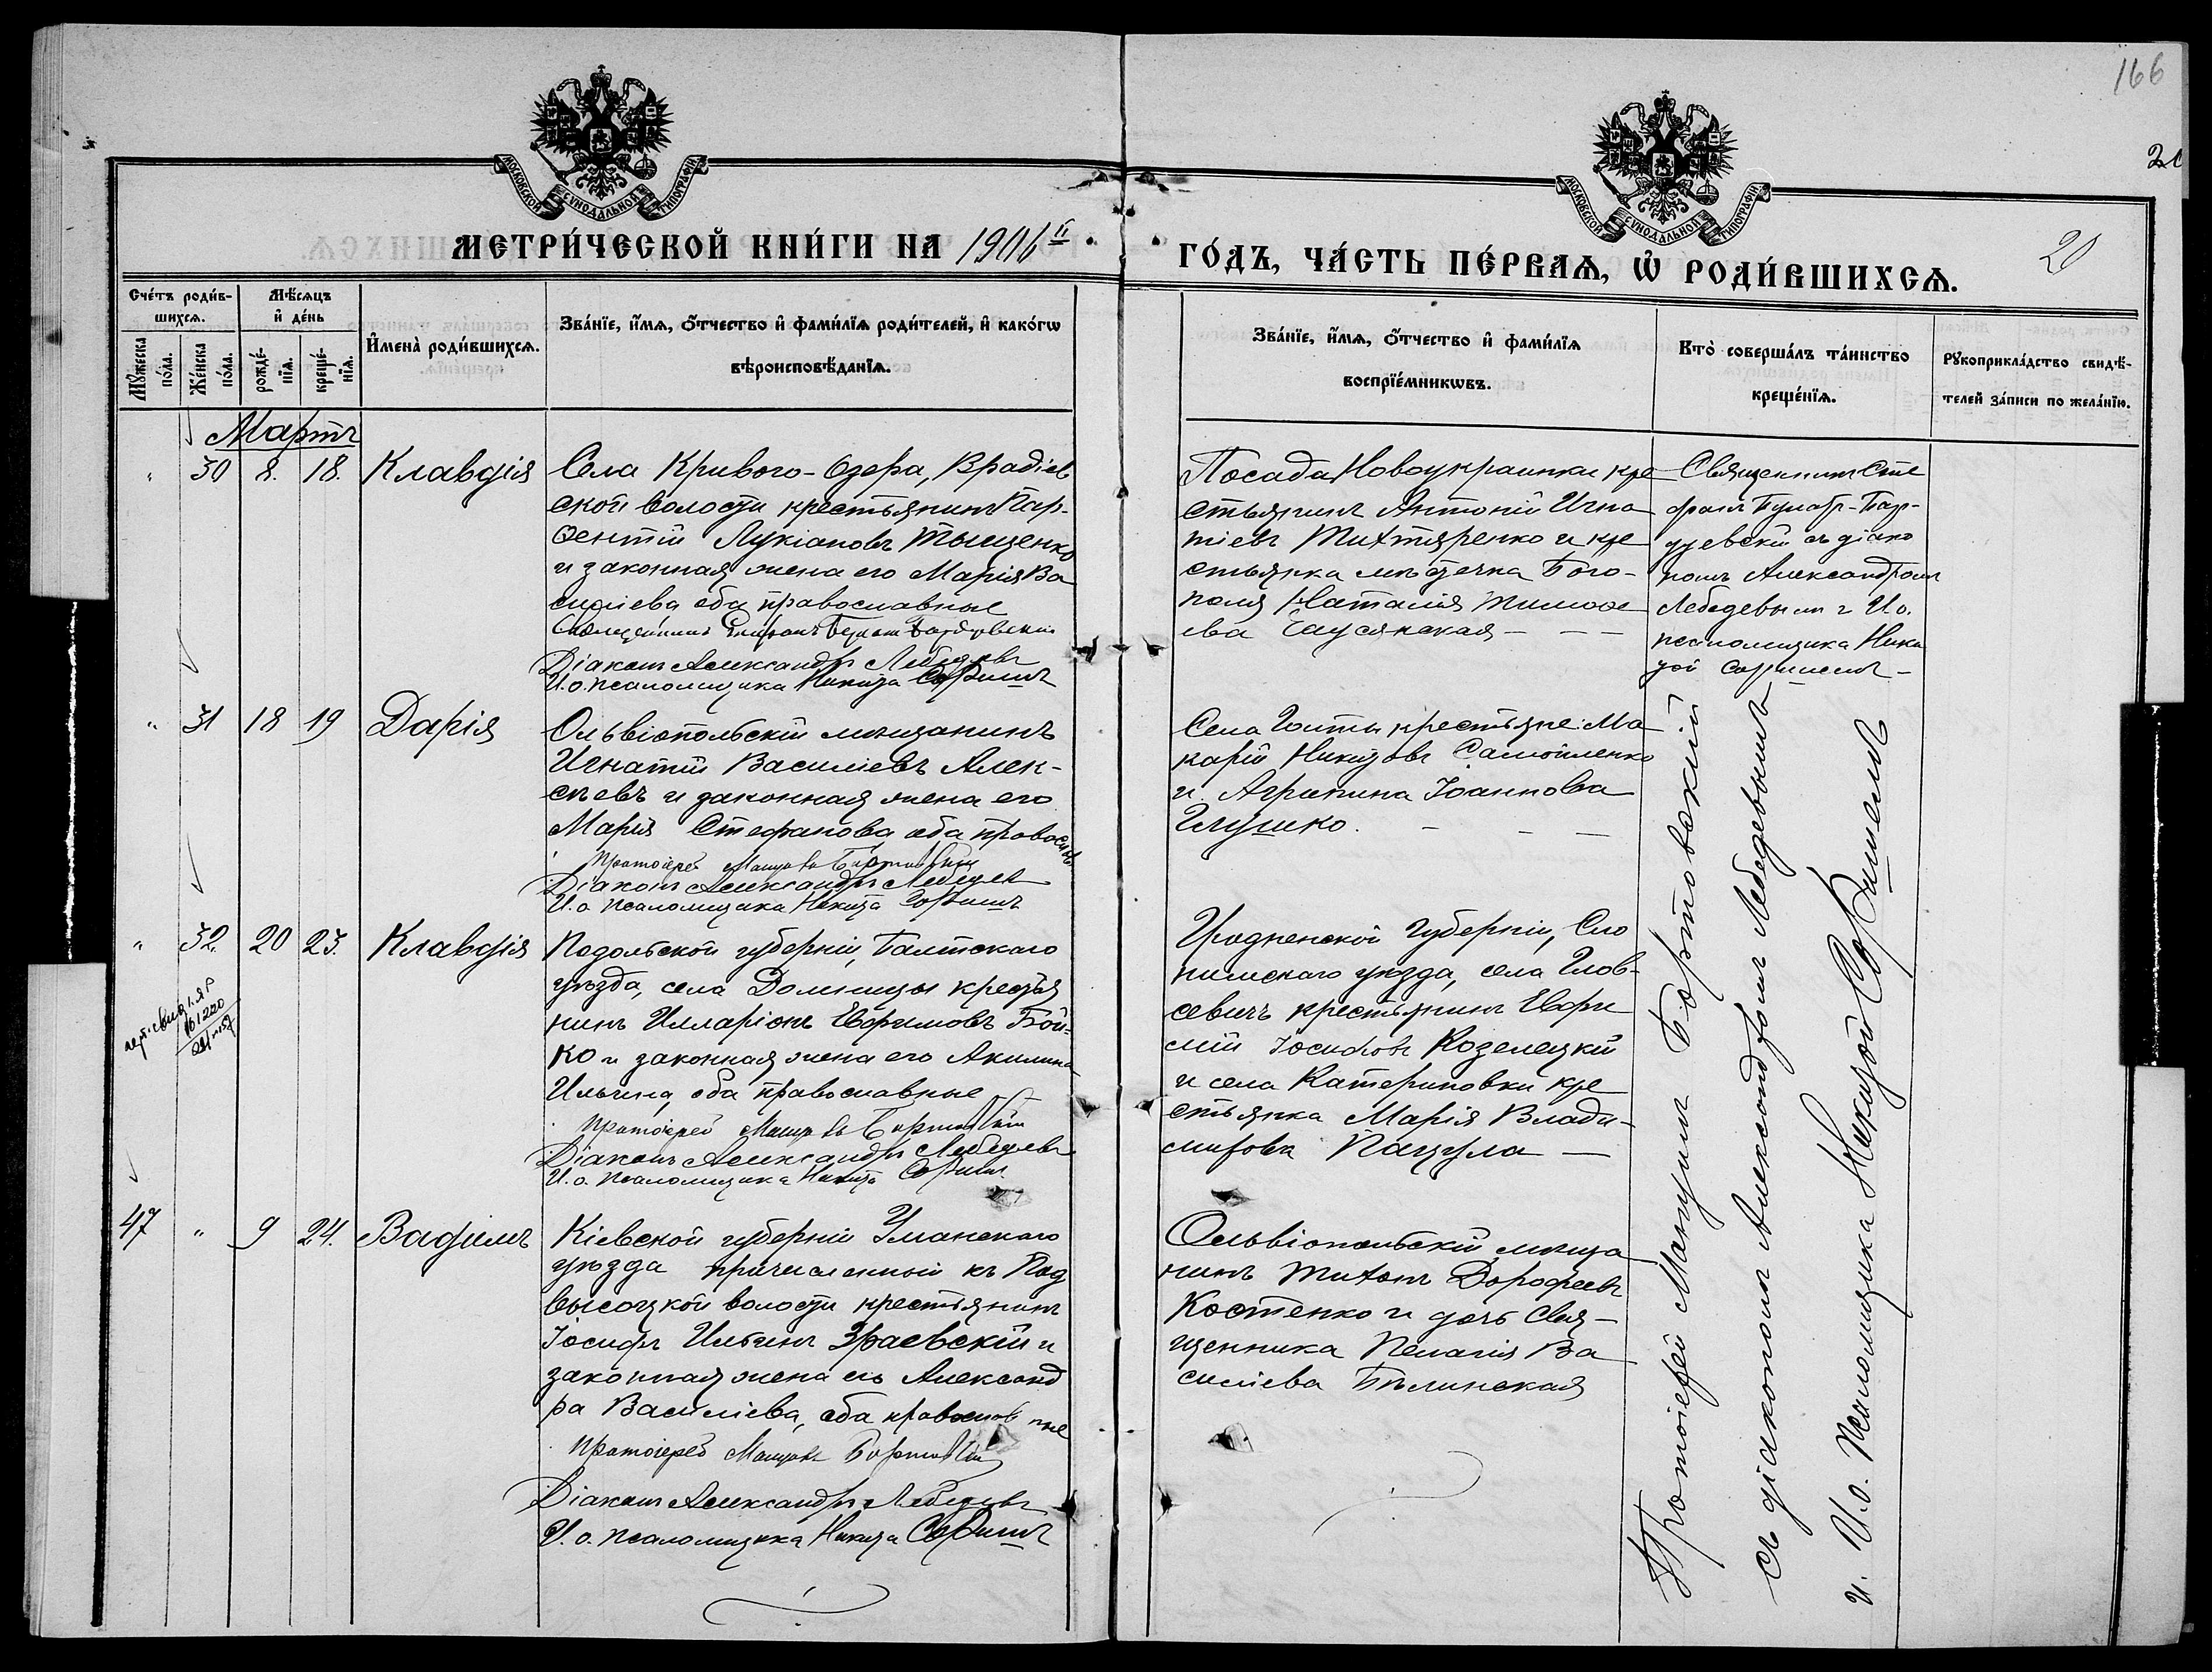 166
20
20
МОСКОВСКОЙ СѴНОДАЛЬНОЙ ТИПОГРАФІИ
МОСКОВСКОЙ СѴНОДАЛЬНОЙ ТИПОГРАФІИ
МЕТРИ́ЧЕСКОЙ КНИ́ГИ НА 1906й
ГО́ДЪ, ЧА́СТЬ ПЕ́РВАѦ, Ѡ҆ РОДИ́ВШИХСѦ.
Сче́тъ роди́в-
шихсѧ.
Мѣ́сѧцъ
и҆ де́нь
Мꙋ́жеска по́ла.
Же́нска по́ла.
рожде́-
нїѧ.
креще́-
нїѧ.
И҆мена̀ роди́вшихсѧ.
Зва́нїе, и҆́мѧ, ѻ҆́тчество и҆ фами́лїѧ роди́телей, и҆ како́гѡ
вѣроисповѣ́данїѧ.
Зва́нїе, и҆́мѧ, ѻ҆́тчество и҆ фами́лїѧ
воспрїе́мникѡвъ.
Кто̀ соверша́лъ та́инство
креще́нїѧ.
Рꙋкоприкла́дство свидѣ́-
телей за́писи по жела́нїю.
Мартъ
" 30 8. 18. Клавдія
Села Криваго-Озера, Врадіев
ской волости крестьянинъ Пар-
ѳентій Лукіановъ Тыщенко
и законная жена его Марія Ва
силіева оба православные
Священникъ Стефанъ
Діаконъ Александръ Лебедевъ
И.о. псаломщика Никита
Посада Новоукраинки кре
стьянинъ Антоній Игна
тіевъ Тихтяренко и кре
стьянка мѣстечка Бого-
поля Наталія Тимоѳе
ева Гаусянская - - -
Священникъ Сте
фанъ
съ діако
номъ Александромъ
Лебедевымъ и И.о.
псаломщика Ники
той
" 31 18 19 Дарія
Ольвіопольскій мѣщанинъ
Игнатій Василіевъ Алек-
сѣевъ и законная жена его
Марія Стефанова оба правосл.
Протоіерей
Діаконъ Александръ Лебедев
И.о. псаломщика Никита
Села Голты крестьяне: Ма
карій Никитовъ Самойленко
и Агрипина Іоаннова
Глушко. - - -
" 32. 20 23. Клавдія
Подольской губерніи, Балтскаго
уѣзда, села Доминицы крестья
нинъ Илларіонъ Евфимовъ Бой-
ко и законная жена его Акилина
Ильина, оба православные
Протоіерей
Діаконъ Александръ Лебедевъ
И.о. псаломщика Никита
Гродненской Губерніи, Сло
нимскаго уѣзда, села Глов-
севичъ крестьянинъ Евфи
мій Іосифовъ Козелецкій
и села Катериновки кре
стьянка Марія Влади-
мирова Пацула -
47 " 9 24. Вадимъ
Кіевской губерніи Уманскаго
уѣзда причисленный къ Под
высоцкой волости крестьянинъ
Іосифъ Ильинъ Зраевскій и
законная жена его Александ
ра Василіева, оба православ ные
Протоіерей
Діаконъ Александръ Лебедевъ
И.о. псаломщика Никита
Ольвіопольскій мѣща
нинъ Тихонъ Дорофеевъ
Костенко и дочь Свя-
щенника Пелагія Ва
силіева Бѣлинская
Протоіерей Бортовскій
съ діакономъ Александромъ Лебедевымъ
и И.о. Псаломщика Никитой